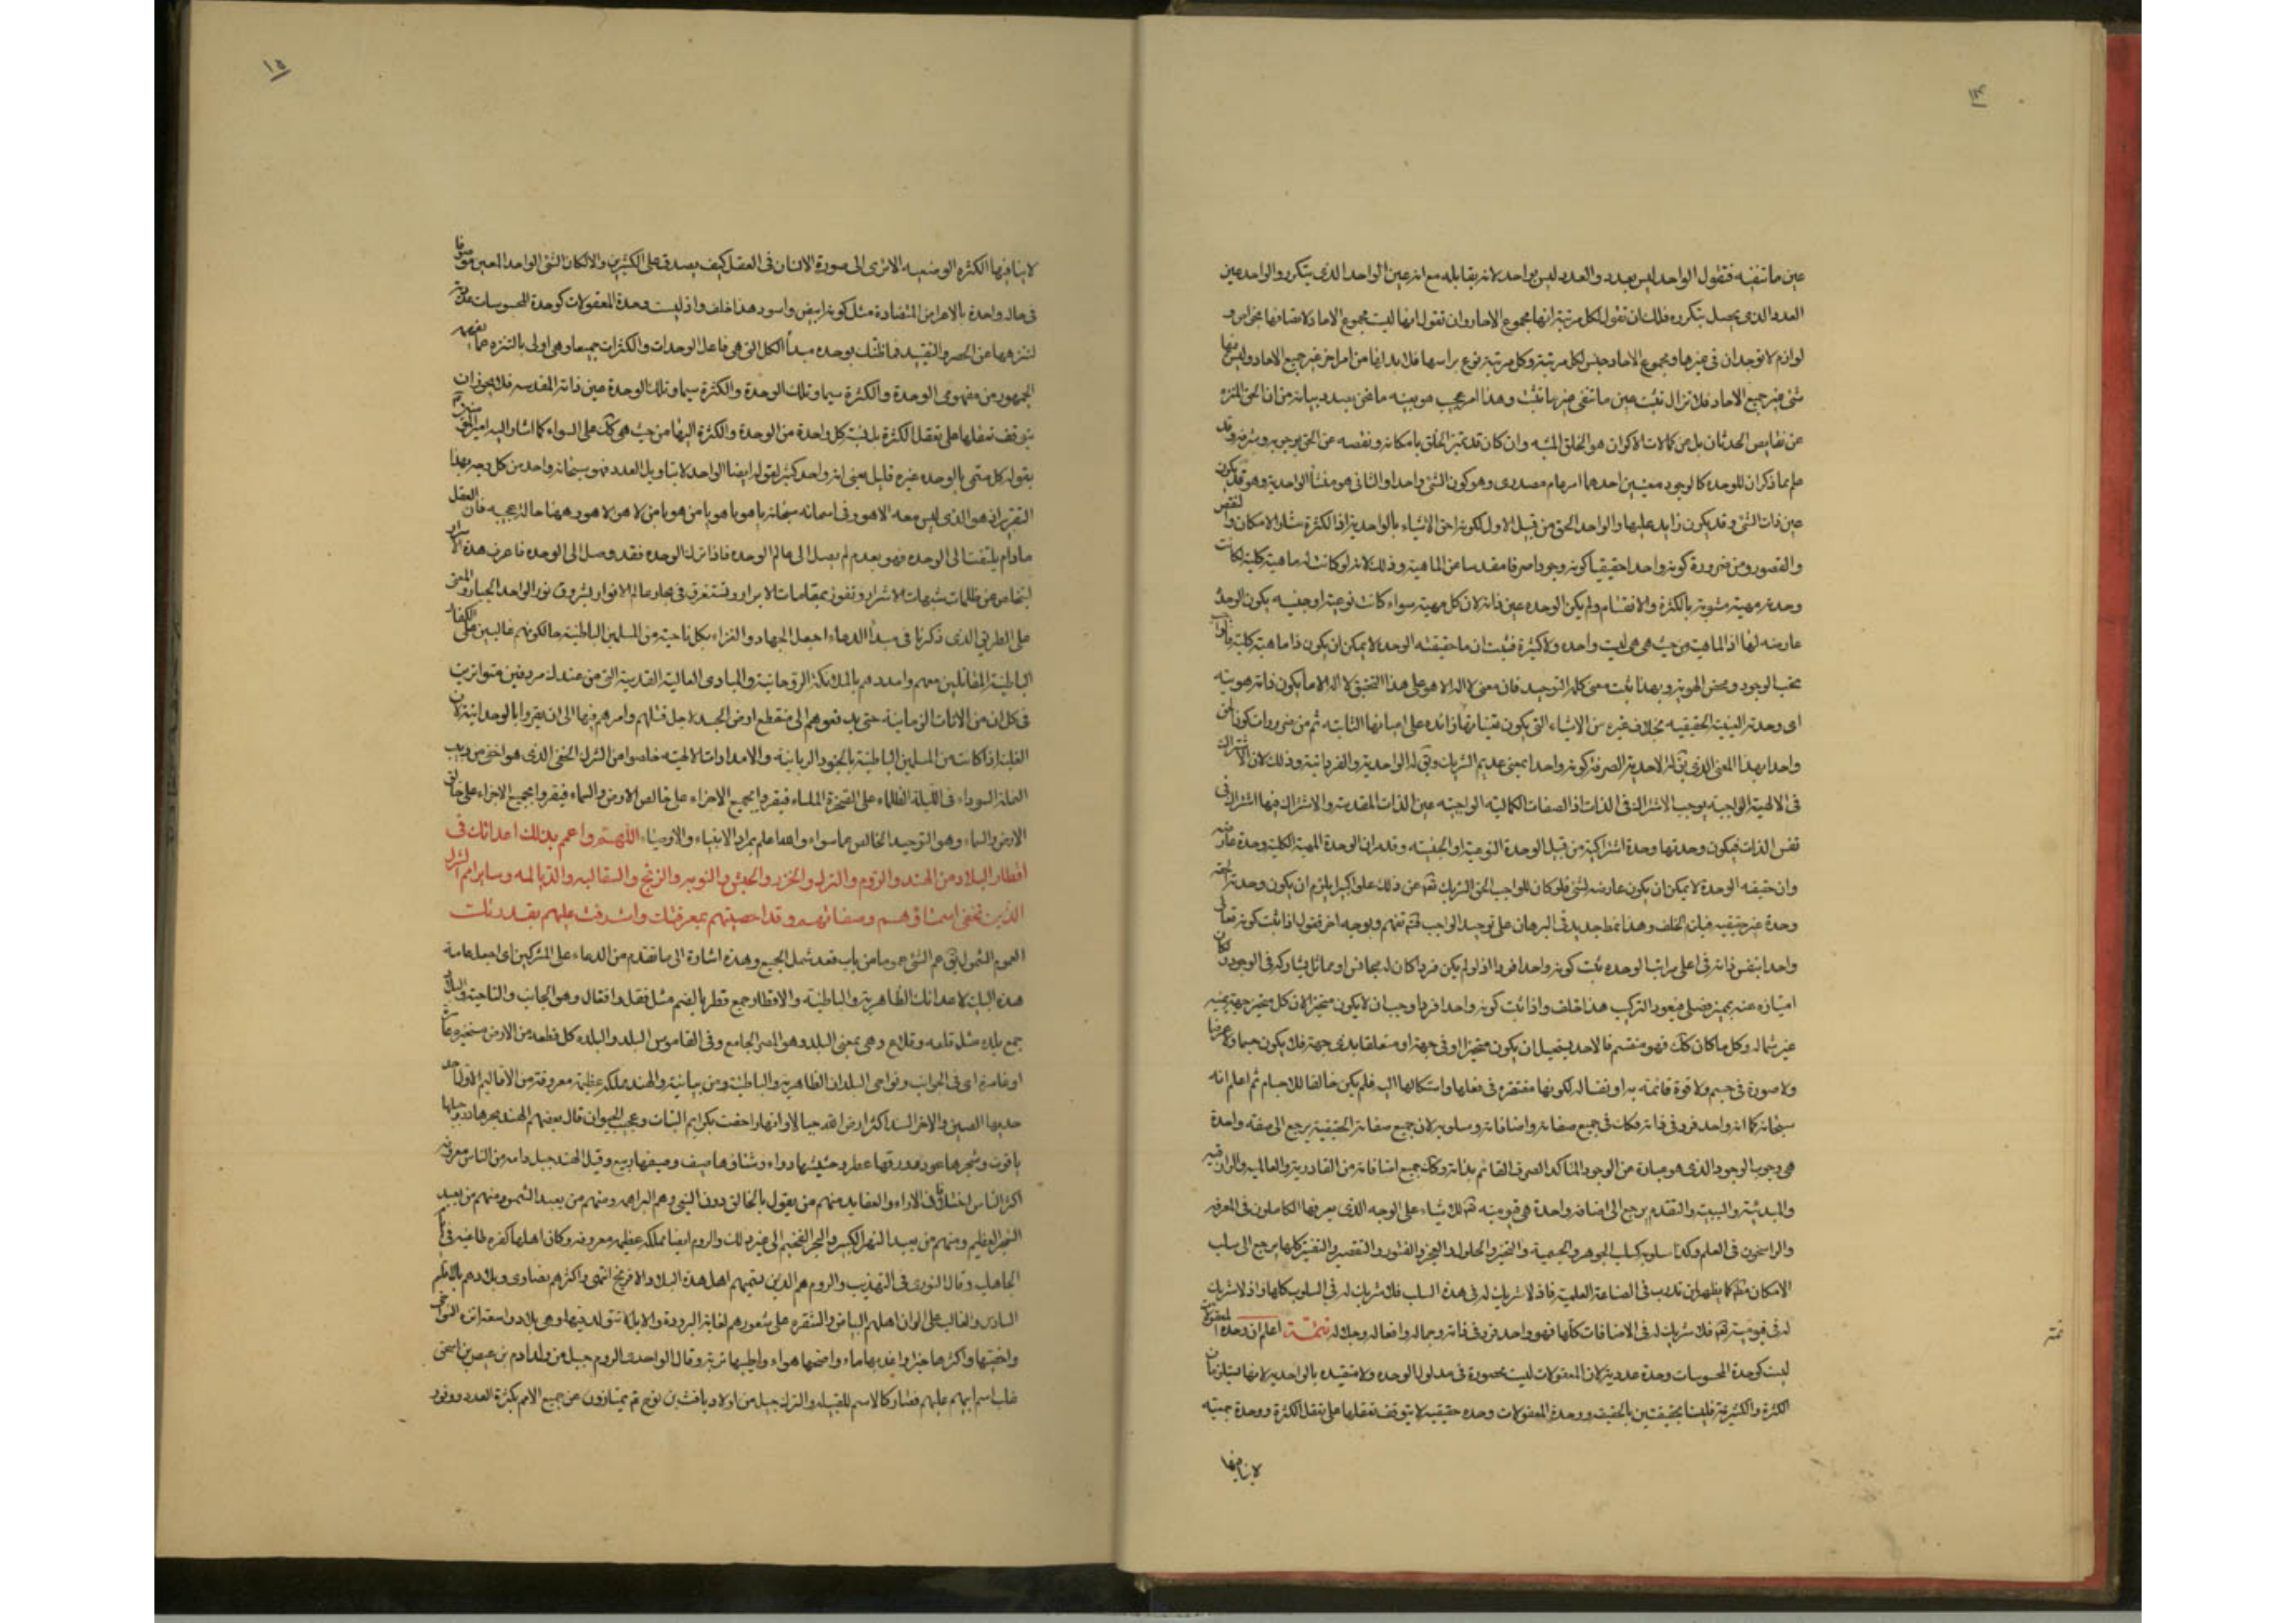 ١٤
عين ما تنفيه فنقول الواحد ليس بعدد والعدد ليس بواحد لانه يقابله مع انه عين الواحد الذى يتكرر والواحد عين
العدد الذى يحصل بتكرره فلك ان تقول لكل مرتبة انها مجموع الاحاد وان تقول انها ليست مجموع الاحاد لاتصافها بخواص و
لوازم لا توجدان فى غيرها ومجموع الاحاد جنس لكل مرتبة وكل مرتبة نوع براسها فلا بد لها من امر اخر غير جميع الاحاد وليس فيها
شئ غير جميع الاحاد فلا تزال تثبت عين ما تنفى وهذا امر عجيب هو بعينه ما نحن بصدد بيانه من ان الحق المنزه
عن نقايص الحدثان بل عن كمالات الاكوان هو الخلق المشبه وان كان قد تميز الخلق بامكانه ونقصه عن الحق بوجوبه وشرفه وقد
علم بما ذكر ان للوحدة كالوجود معنيين احدهما امر عام مصدرى وهو كون الشئ واحدا والثانى هو منشأ الواحدية وهو قد يكون
عين ذات الشئ وقد يكون زايد عليها والواحد الحق من قبيل الاول لكونه احق الاشياء بالواحدية اذ الكثرة مثار الامكان والنقص
والقصور ومن ضرورة كونه واحدا حقيقيا كونه وجودا صرفا مقدسا عن الماهية وذلك لانه لو كانت له ماهية كلية لكانت
وحدته مهية مشوبة بالكثرة والانقسام ولم يكن الوحدة عين ذاته لان كل مهية سواء كانت نوعية او جنسية يكون الوحدة
عارضة لها اذ الماهية من حيث هى هى ليست واحدة ولا كثيرة فثبت ان ما حقيقته الوحدة لا يمكن ان يكون ذا ماهية كلية
بحت الوجود ومحض الهوية وبهذا يثبت معنى كلمة التوحيد فان معنى لا اله الا هو على هذا التحقيق لا اله الا ما يكون ذاته هويته
اى وحدته العينية الحقيقية بخلاف غيره من الاشياء التى يكون تعيناتها زائدة على اعيانها الثابتة ثم من ضرورات كونه
واحدا بهذا المعنى الذى يقال له الاحدية الصرفة كونه واحدا بمعنى عديم الشريك ويقال له الواحدية والفردانية وذلك لان الاشتراك
فى الالهية الواجبة يوجب الاشتراك فى الذات اذ الصفات الكمالية الواجبية عين الذات المقدسة والاشتراك فيها اشتراك فى
نفس الذات فيكون وحدتها وحدة اشتراكية من قبيل الوحدة النوعية او الجنسية وقد مر ان الوحدة للمهية الكلية وحدة عارضة
وان حقيقة الوحدة لا يمكن ان يكون عارضة لشئ فلو كان للواجب الحق الشريك تعالى عن ذلك علوا كبيرا يلزم ان يكون وحدته
وحدة غير حقيقية فبان الخلف وهذا نمط جديد فى البرهان على توحيد الواجب فتفهم وبوجه اخر فنقول اذا ثبت كونه تعالى
واحدا بنفس ذاته فى اعلى مراتب الوحدة ثبت كونه واحدا فردا اذ لو لم يكن فردا كان له مجانس او مماثل يشاركه فى الوجود وكان
امتيازه عنه بمميز فصلى فيعود التركيب هذا خلف واذا ثبت كونه واحدا فردا وجب ان لا يكون متحيزا لان كل متحيز جهة يمينه
غير شماله وكل ما كان كذلك فهو منقسم فالاحد يستحيل ان يكون متحيزا او فى جهة او متعلقا بذى جهة فلا يكون جسما ولا عرضا
ولا صورة فى جسم ولا قوة قائمة به او نفسا له لكونها مفتقرة فى فعلها واستكمالها اليه فلم يكن خالقا للاجسام ثم اعلم انه
سبحانه كما انه واحد فرد فى ذاته فكذلك فى جميع صفاته واضافاته وسلوبه لان جميع صفاته الحقيقية يرجع الى صفة واحدة
هى وجوب الوجود الذى هو عبارة عن الوجود المتاكد الصرف القائم بذاته وكذلك جميع اضافاته من القادرية والعالمية والرازقية
والمبدئية والسببية والتقدم يرجع الى اضافة واحدة هى قيوميته للاشياء على الوجه الذى يعرفها الكاملون فى المعرفة
والراسخون فى العلم وكذا سلوبه كسلب الجوهر والجسمية والتحيز والحلول والعجز والفتور والتقصير والتغير كلها يرجع الى سلب
الامكان كما يظهر لمن تدرب فى الصناعة العلمية فاذ لا شريك له فى هذه السلب فلا شريك له فى السلوب كلها واذ لا شريك
له فى قيوميته فلا شريك له فى الاضافات كلها فهو واحد فرد فى ذاته وجماله وافعاله وجلاله تتمة اعلم ان وحدة المعقولات
ليست كوحدة المحسوسات وحدة عددية لان المعقولات ليست محصورة فى مدلول الوحدة ولا متقيدة بالواحدية لانها
الكثرة والكثرية فليستا بحقيقتين بالحقيقة ووحدة المعقولات وحدة حقيقية لا يتوقف تعقلها على تعقل الكثرة ووحدة جمعية
لا ينافيها
تتمة
١٥
لا ينافيها الكثرة الوضعية الا ترى الى صورة الانسان فى العقل كيف يصدق على الكثيرين والا لكان الشئ الواحد المعين موصوفا
فى حالة واحدة بالاعراض المتضادة مثل كونه ابيض واسود هذا خلف واذ ليست وحدة المعقولات كوحدة المحسوسات عددية
لتنزهها عن الحصر والتقييد فما ظنك بوحدة مبدأ الكل التى هى فاعل الوحدات والكثرات جميعا وهى اولى بالتنزه عما يفهمه
الجمهور من مفهومى الوحدة والكثرة سيما وتلك الوحدة والكثرة سيما وتلك الوحدة عين ذاته المقدسة فلا يجوز ان
يتوقف تعقلها على تعقل الكثرة بل نسبة كل واحدة من الوحدة والكثرة اليها من حيث هى كذلك على السواء كما اشار اليه امير
بقوله كل مسمى بالوحدة غيره قليل يعنى انه واحد كثير لقوله ايضا الواحد لا بتاويل العدد فهو سبحانه واحد من كل وجه بهذا
التقرير اى هو الذى ليس معه الا هو وفى اسمائه سبحانه يا هو يا هو يا من هو يا من لا هو الا هو وههنا حالة عجيبة فان العقل
ما دام يلتفت الى الوحدة فهو بعد لم يصل الى عالم الوحدة فاذا ترك الوحدة فقد وصل الى الوحدة فاعرف هذه الاسرار
لتخلص عن ظلمات شبهات الاشرار وتفوز بمقامات الابرار وتستغرق فى بحار عالم الانوار بشروق نور الواحد الجبار والمعنى
على الطريق الذى ذكرنا فى مبدأ الدعاء اجعل الجهاد والغزاء بكل ناحية من المسلمين الباطنية حالكونهم غالبين على الكفار
الباطنية المقاتلين معهم وامددهم بالملائكة الروحانية والمبادى العالية القدسية التى من عندك مردفين متواترين
فى كل ان من الانات الزمانية حتى يدفعوهم الى منقطع ارض الجسد لاجل قتلهم وامرهم فيها الى ان يقروا بالوحدانية لان
الغلبة اذا كانت من المسلمين الباطنية بالجنود الربانية والامدادات الالهية خلصوا من الشرك الخفى الذى هو اخفى من دبيب
النملة السوداء فى الليلة الظلماء على الصخرة الملساء فيقروا بجميع الاجزاء على خالص الارض والسماء فيقروا بجميع الاجزاء على خالق
الارض والسماء وهو التوحيد الخالص عما سواه والله اعلم بمراد الانبياء والاوصياء اللهم واعمم بذلك اعدائك فى
اقطار البلاد من الهند والروم والترك والخزر والحبش والنوبة والزنج والسقالبة والديالمة وساير امم الشرك
الذين تخفى اسماؤهم وصفاتهم وقد احصيتهم بمعرفتك واشرفت عليهم بقدرتك
العموم الشمول يقال عم الشئ عموما من باب قعد شمل الجميع وهذه اشارة الى ما تقدم من الدعاء على المشركين اى اجعل عامة
هذه البليات لاعدائك الظاهرية والباطنية والاقطار جمع قطر بالضم مثل قفل واقفال وهو الجانب والناحية والبلاد
جمع بلدة مثل قلعة وقلاع وهى بمعنى البلد وهو المصر الجامع وفى القاموس البلد والبلدة كل قطعة من الارض مستحيزة عامرة
او غامرة اى فى الجوانب ونواحى البلدان الظاهرية والباطنية ومن بيانية والهند مملكة عظيمة معروفة من الاقاليم
حديها الصين والاخر السند اكثر ارض الله جبالا وانهارا اختصت بكرايم النبات وعجيب الحيوان قال بعضهم الهند بحرها در وجبلها
ياقوت وشجرها عود وورقها عطر وحشيشها دواء وشتاؤها صيف وصيفها ربيع وقيل الهند جيل وامة من الناس معروفة
اكثر الناس اختلافا فى الاراء والعقايد منهم من يقول بالخالق دون النبى وهم البراهمة ومنهم من يعبد الشمس ومنهم من يعبد
الشجر العظيم ومنهم من يعبد النهر الكبير والحجر الفخيم الى غير ذلك والروم ايضا مملكة عظيمة معروفة وكان اهلها كفرة طاغية فى
الجاهلية وقال النووى فى التهذيب والروم هم الذين يسميهم اهل هذه البلاد الافرنج انتهى واكثرهم نصارى وبلادهم بالاقليم
السادس والغالب على الوان اهلهم البياض والشقرة على شعورهم لغاية البرودة والابل لا تتولد فيها وهى بلاد واسعة انزه النواحى
واخصبها واكثرها خيرا واعذبها ماء واصحها هواء واطيبها تربة وقال الواحدى الروم جيل من ولد ادم بن عيص بن اسحق
غلب اسم ابيهم عليهم فصار كالاسم للقبيلة والترك جيل من اولاد يافث بن نوح يمتازون عن جميع الامم بكثرة العدد ووفور